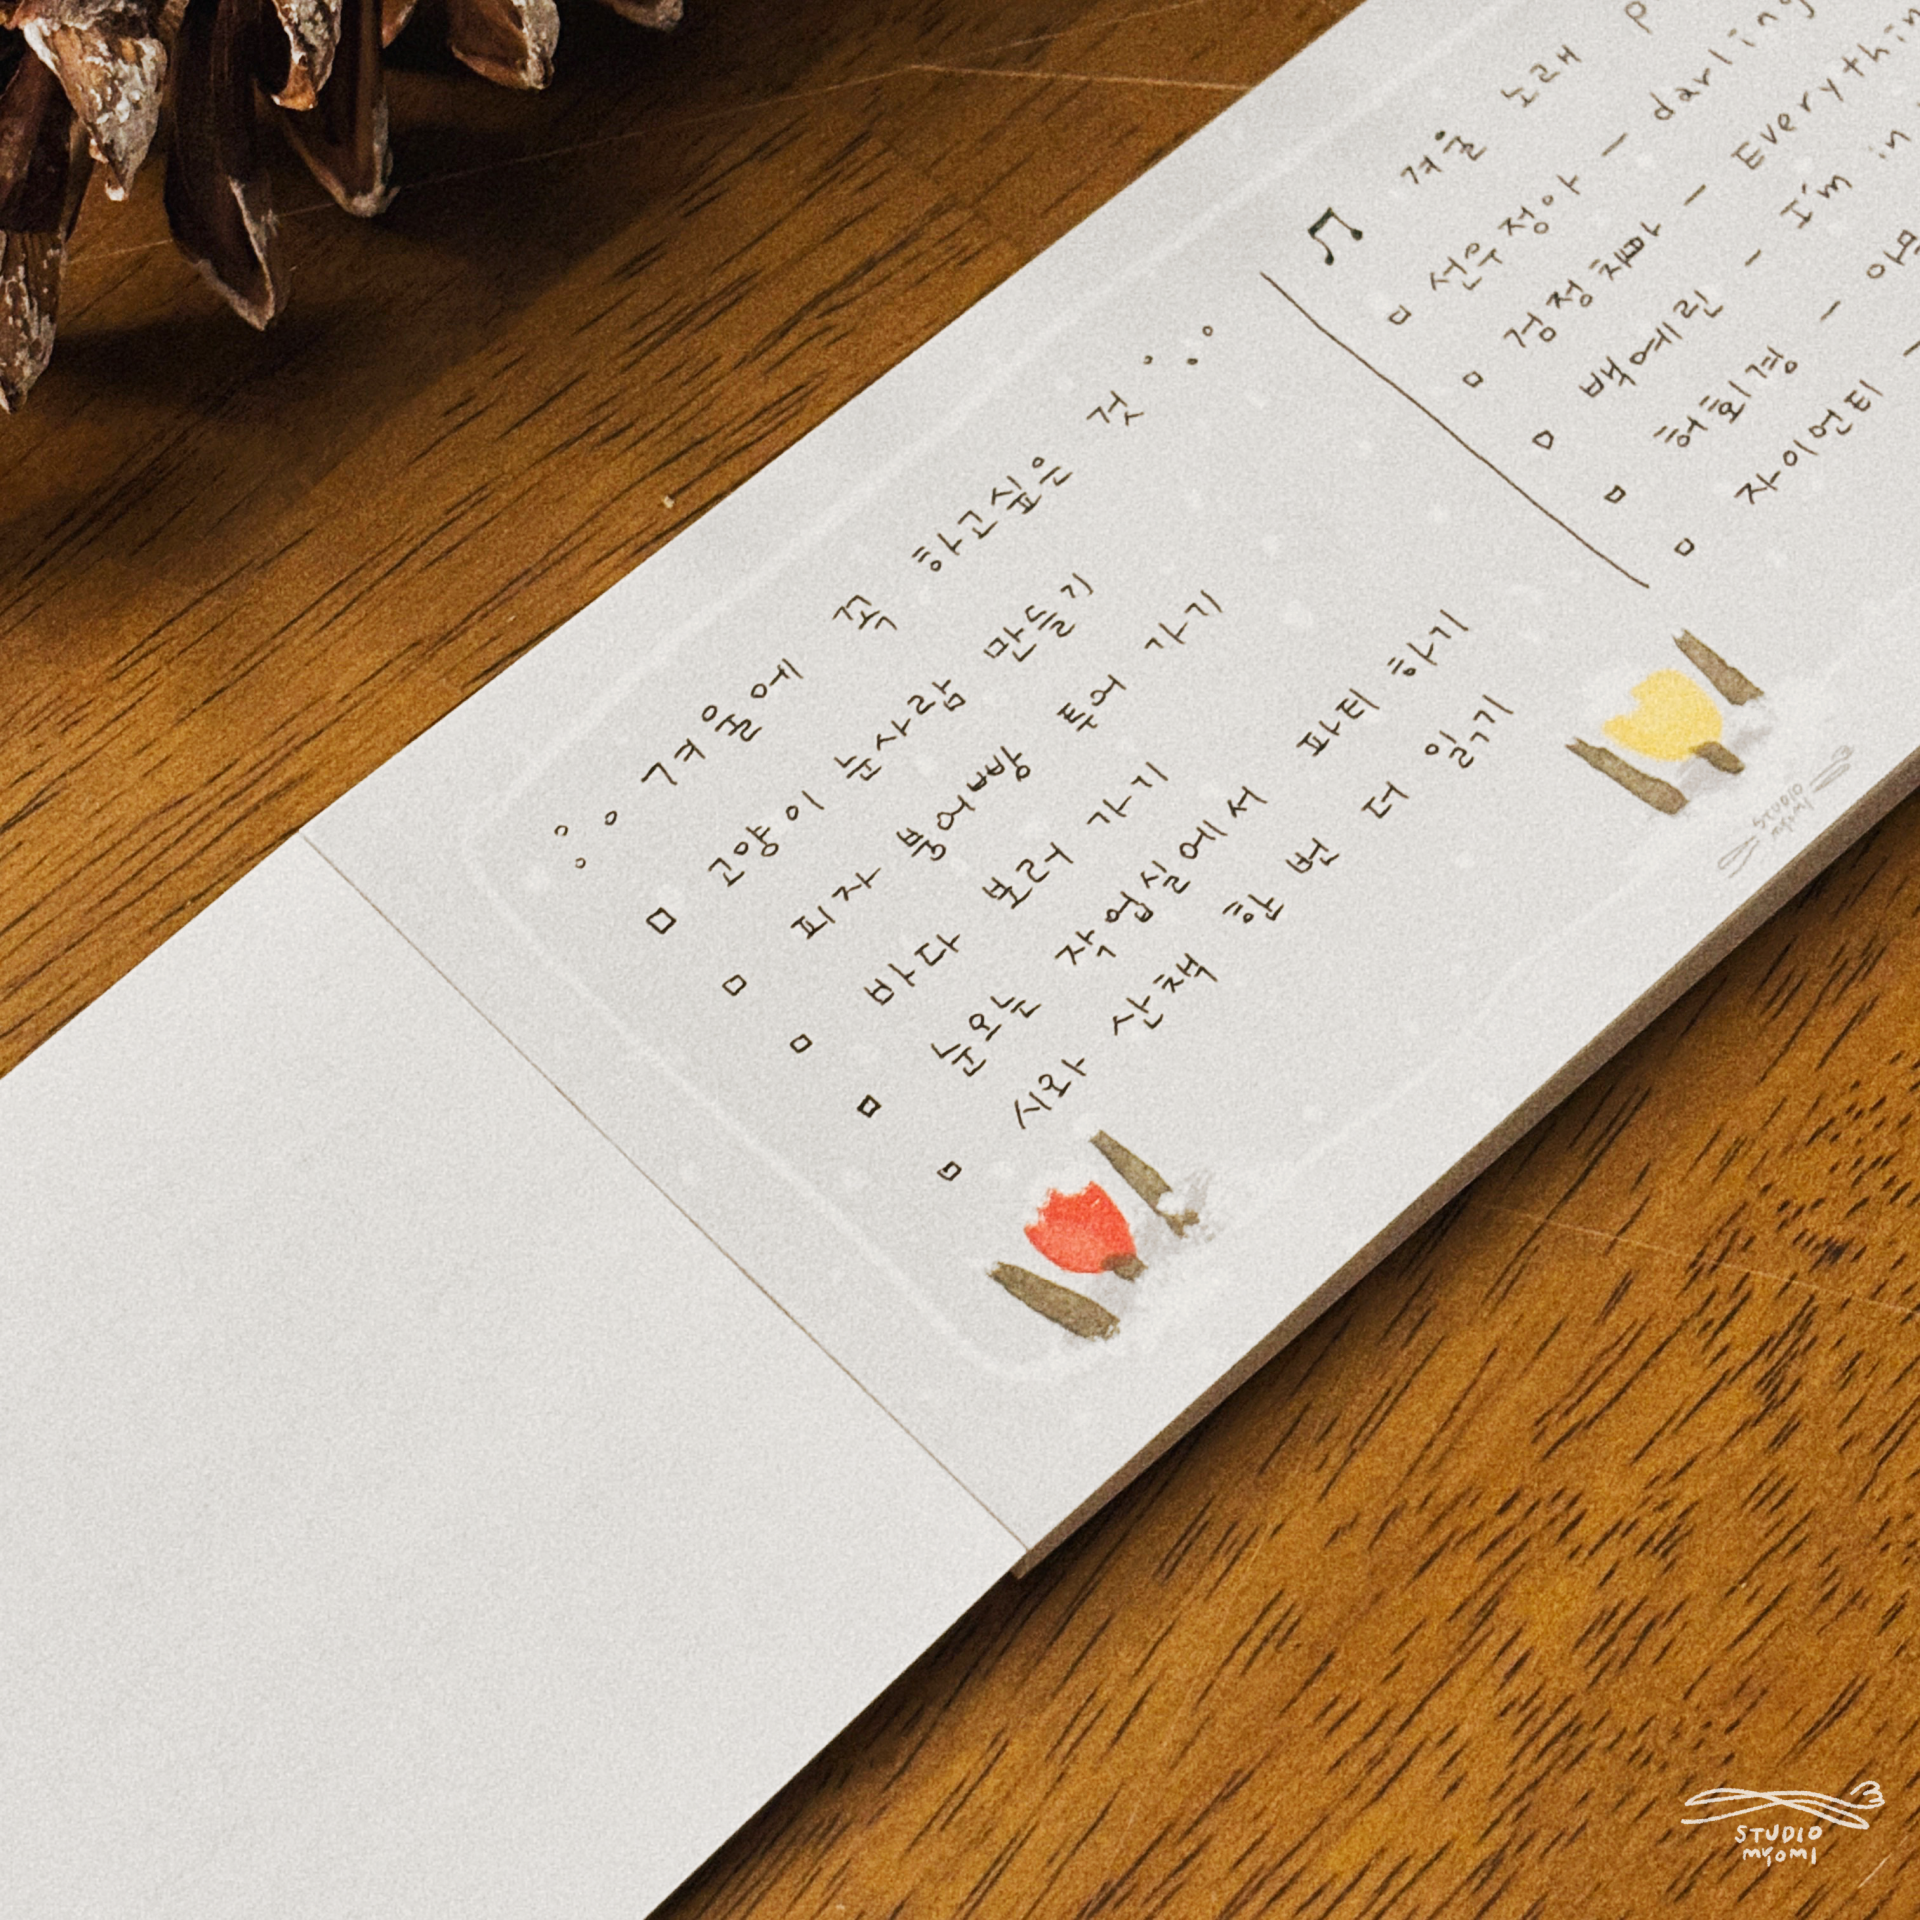 겨울에 꼭 하고싶은 것
□ 고양이 눈사람 만들기
□ 피자 붕어빵 투어 가기
□ 바다 보러 가기
□ 눈오는 작업실에서 파티 하기
□ 시와 산책 한 번 더 읽기
♫ 겨울 노래
□ 선우정아 - darling
□ 검정치마 - Everythin
□ 백예린 - I'm in
□ 허회경 -
□ 자이언티 -
STUDIO
myomi
STUDIO
myomi